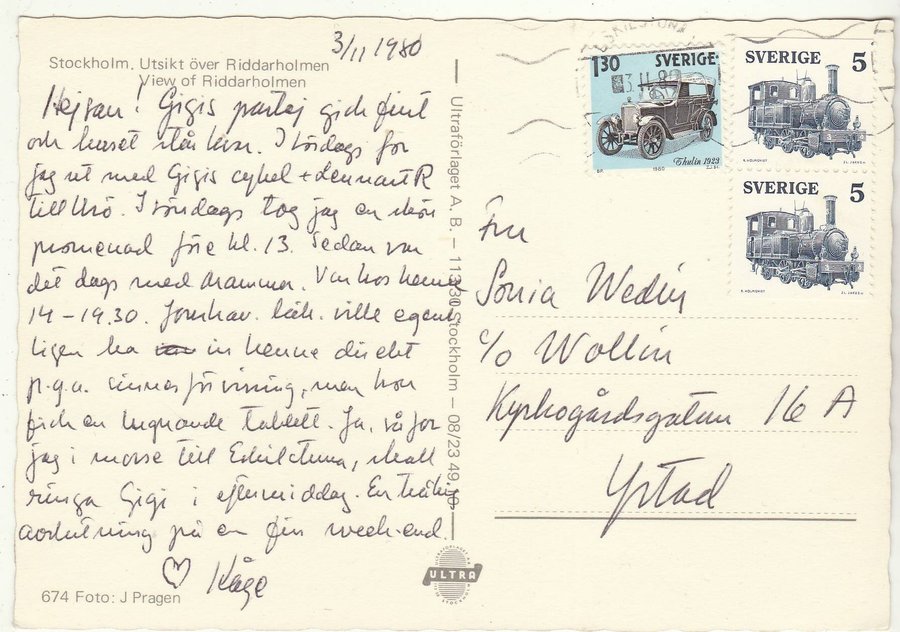 3/11 1980
Stockholm. Utsikt över Riddarholmen
View of Riddarholmen
Hejsan! Gigis partej gick fint
och huset står kvar. I lördags for
jag ut med Gigis cykel + Lennart R
till . I söndags tog jag en skön
promenad före kl. 13. Sedan var
det dags med mamma. Var hos henne
14-19.30. läk. ville egent
ligen ha in henne direkt
p.g.a. sinnesförvirring, men hon
fick en lugnande tablett. Ja, så for
jag i morse till Eskilstuna, skall
ringa Gigi i eftermiddag. En tråkig
avslutning på en fin weekend.
♡ Kåge
674 Foto: J Pragen
Ultraförlaget A.B. – 113 30 Stockholm – 08/23 49 10
ULTRA
ESKILSTUNA
3 11 80
1.30 SVERIGE
Thulin 1923
1980
SVERIGE 5
SVERIGE 5
Fru
Sonia Wedin
c/o Wollin
Kyrkogårdsgatan 16 A
Ystad